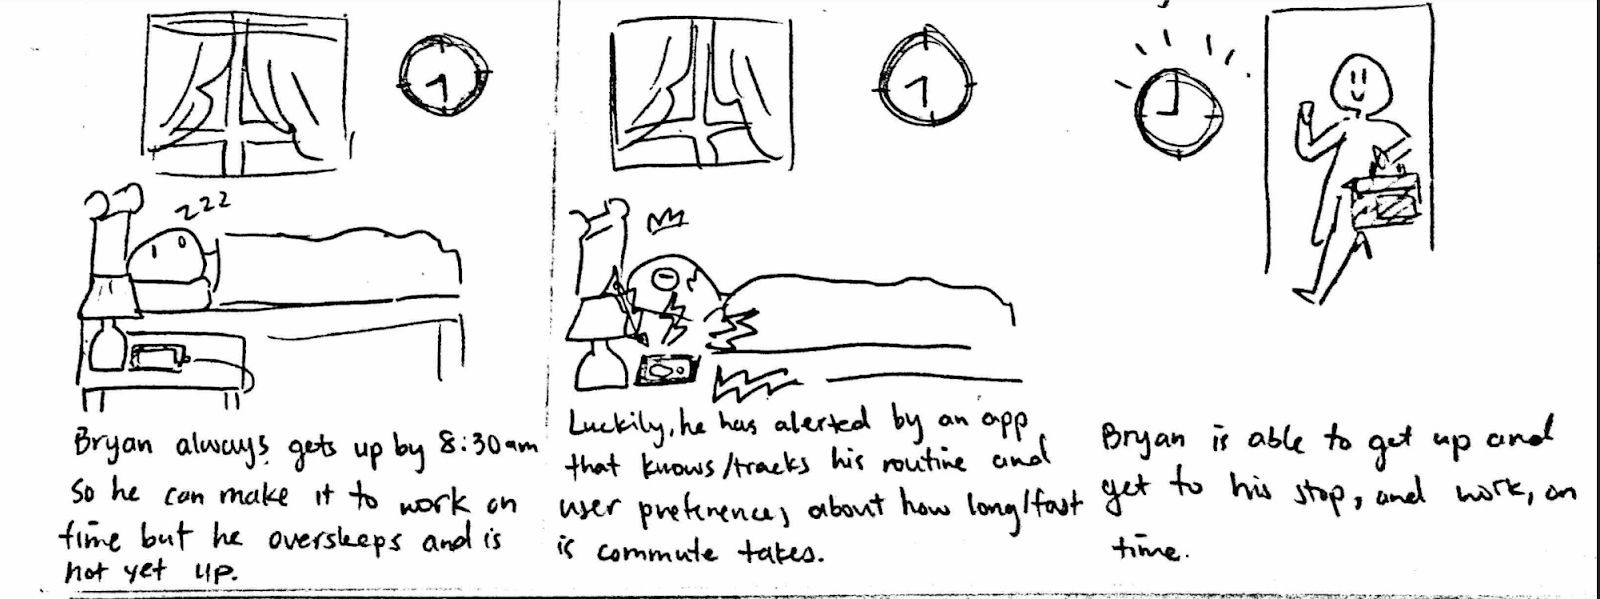 zzz
Bryan always gets up by 8:30am
so he can make it to work on
time but he oversleeps and is
not yet up.
Luckily, he has alerted by an app
that knows/tracks his routine and
user preferences about how long/fast
is commute takes.
Bryan is able to get up and
get to his stop, and work, on
time.